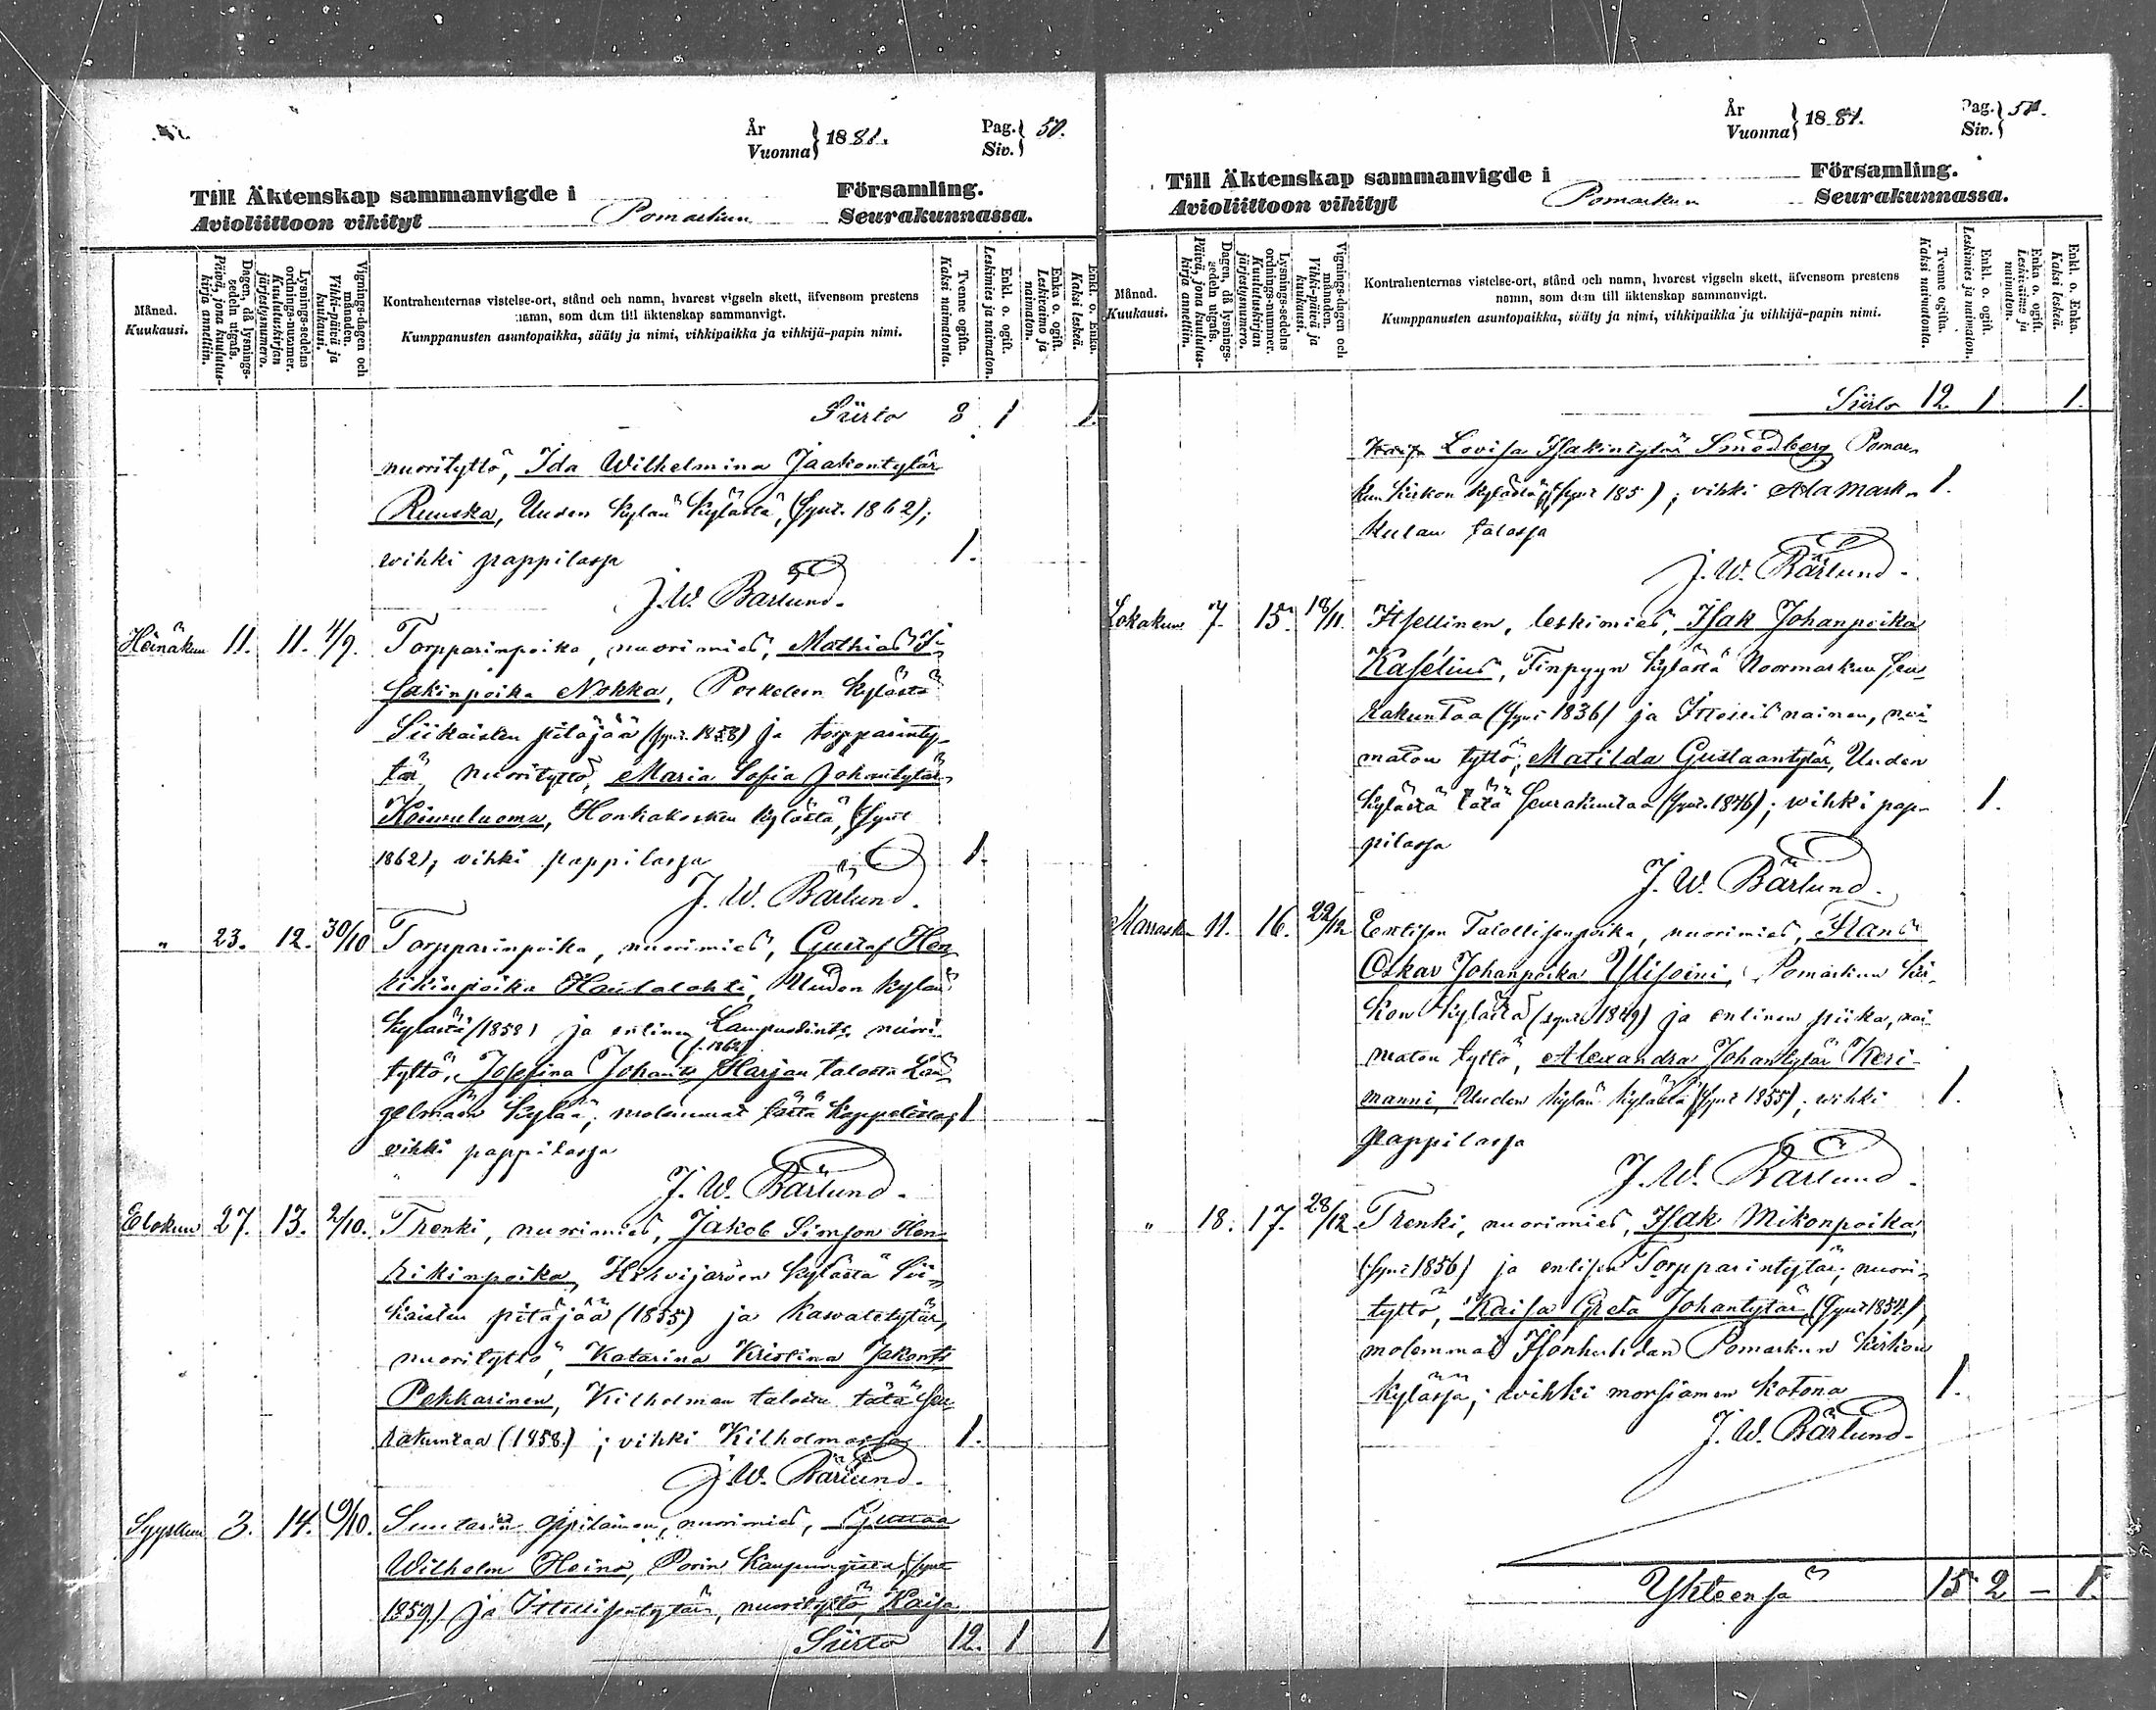 År
Vuonna } 1881. Pag. Siv. } 50.
Till Äktenskap sammanvigde i Församling.
Avioliittoon vihityt Pomarkun Seurakunnassa.
Månad.
Kuukausi.
Dagen, då lysnings-sedeln utgafs.
Päivä, jona kuulutus-kirja annettiin.
Lysnings-sedelns ordnings-nummer.
Kuulutuskirjan järjestysnumero.
Vignings-dagen och månaden.
Vihki-päivä ja kuukausi.
Kontrahenternas vistelse-ort, stånd och namn, hvarest vigseln skett, äfvensom prestens
namn, som dem till äktenskap sammanvigt.
Kumppanusten asuntopaikka, sääty ja nimi, vihkipaikka ja vihkijä-papin nimi.
Tvenne ogifta.
Kaksi naimatonta.
Enkl. o. ogift.
Leskimies ja naimaton.
Enka o. ogift.
Leskivaimo ja naimaton.
Enkl. o. Enka.
Kaksi leskeä.
Siirto 8 1 1.
nuorityttö, Ida Wilhelmina Jaakontytär
Ruuska, Uuden kylän kylästä, (synt. 1862);
wihki pappilassa 1.
J. W. Bärlund.
Heinäkuu 11. 11. 4/9. Torpparinpoika, nuorimies, Mathias I-
sakinpoika Nokka, Poskelen kylästä
Siikaisten pitäjää (synt. 1858) ja torpparinty-
tär, nuorityttö, Maria Sofia Johantytär
Koiwuluoma, Honkakosken kylästä, (synt
1862); vihki pappilassa 1.
J. W. Bärlund.
" 23. 12. 30/10 Torpparinpoika, nuorimies, Gustaf Hen-
rikinpoika Hautalahti, Uuden kylän
kylästä (1858) ja entinen nuori-
tyttö, Josefina Johant: Harjan talosta Län-
gelmään kylää; molemmat tästä kappelissa; 1
vihki pappilassa
J. W. Bärlund.
Elokuu 27. 13. 2/10. Trenki, nuorimies, Jakob Simson Hen-
rikinpoika, Hirvijärven kylästä Sii-
kaisten pitäjää (1855) ja kasvatetytär,
nuorityttö, Katarina Kristina Jakonts
Pekkarinen, Kilholman talosta tätä seu-
rakuntaa (1858.) ; vihki Kilholmassa 1.
J. W. Bärlund.
Syyskuu 3. 14. 9/10. Suutarin oppilainen, nuorimies, Gustaa
Wilhelm Heino, Porin kaupungista, (synt
1859.) ja Itsellisentytär, nuorityttö, Kaisa
Siirto 12. 1 1
År
Vuonna } 1881. Pag. Siv. } 51.
Till Äktenskap sammanvigde i Församling.
Avioliittoon vihityt Pomarkun Seurakunnassa.
Månad.
Kuukausi.
Dagen, då lysnings-sedeln utgafs.
Päivä, jona kuulutus-kirja annettiin.
Lysnings-sedelns ordnings-nummer.
Kuulutuskirjan järjestysnumero.
Vignings-dagen och månaden.
Vihki-päivä ja kuukausi.
Kontrahenternas vistelse-ort, stånd och namn, hvarest vigseln skett, äfvensom prestens
namn, som dem till äktenskap sammanvigt.
Kumppanusten asuntopaikka, sääty ja nimi, vihkipaikka ja vihkijä-papin nimi.
Tvenne ogifta.
Kaksi naimatonta.
Enkl. o. ogift.
Leskimies ja naimaton.
Enka o. ogift.
Leskivaimo ja naimaton.
Enkl. o. Enka.
Kaksi leskeä.
Siirto 12. 1 1.
Lovisa Isakintytär Smedberg Pomar-
kun kirkon kylästä, (synt 185 ); vihki Ala Mark- 1.
kulan talossa
J. W. Bärlund.
Lokakuu 7. 15. 18/11. Itsellinen, leskimies, Isak Johanpoika
Kaselius, Finpyyn kylästä Noormarkun seu-
rakuntaa (synt 1836) ja Itsellisnainen, nai-
maton tyttö, Matilda Gustaantytär, Uuden
kylästä tätä seurakuntaa (synt. 1846); wihki pap- 1.
pilassa
J. W. Bärlund.
Marrasku 11. 16. 22/12 Entisen Talollisenpoika, nuorimies, Frans
Oskar Johanpoika Ylisoini, Pomarkun kir-
kon kylästä (synt. 1849) ja entinen piika, nai-
maton tyttö, Alexandra Johantytär Keri-
manni, Uuden kylän kylästä (synt 1855); wihki 1.
pappilassa
J. W. Bärlund.
" 18. 17. 28/12 Trenki, nuorimies, Isak Mikonpoika,
(synt 1856) ja entisen Torpparintytär, nuori-
tyttö, Kaisa Greta Johantytär (synt 1854.),
molemmat Isonhuhdan Pomarkun kirkon
kylässä; wihki morsiamen kotona 1.
J. W. Bärlund.
Yhteensä 15 2 – 1.